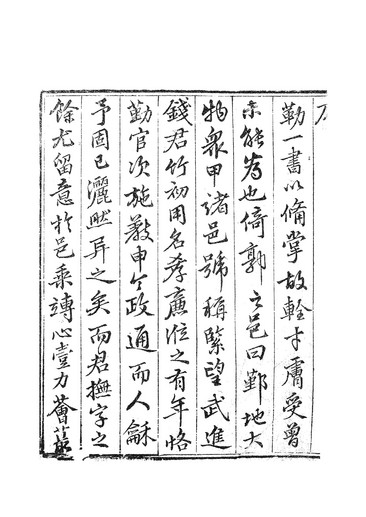 勒一書以備掌故輇才膚受曾
未能為也倚郭之邑曰鄞地大
物眾甲諸邑號稱緊望武進
錢君竹初用名孝廉涖之有年恪
勤官次施教申令政通而人龢
予固已灑然異之矣而君撫字之
餘尤留意於邑乘竱心壹力薈蕞